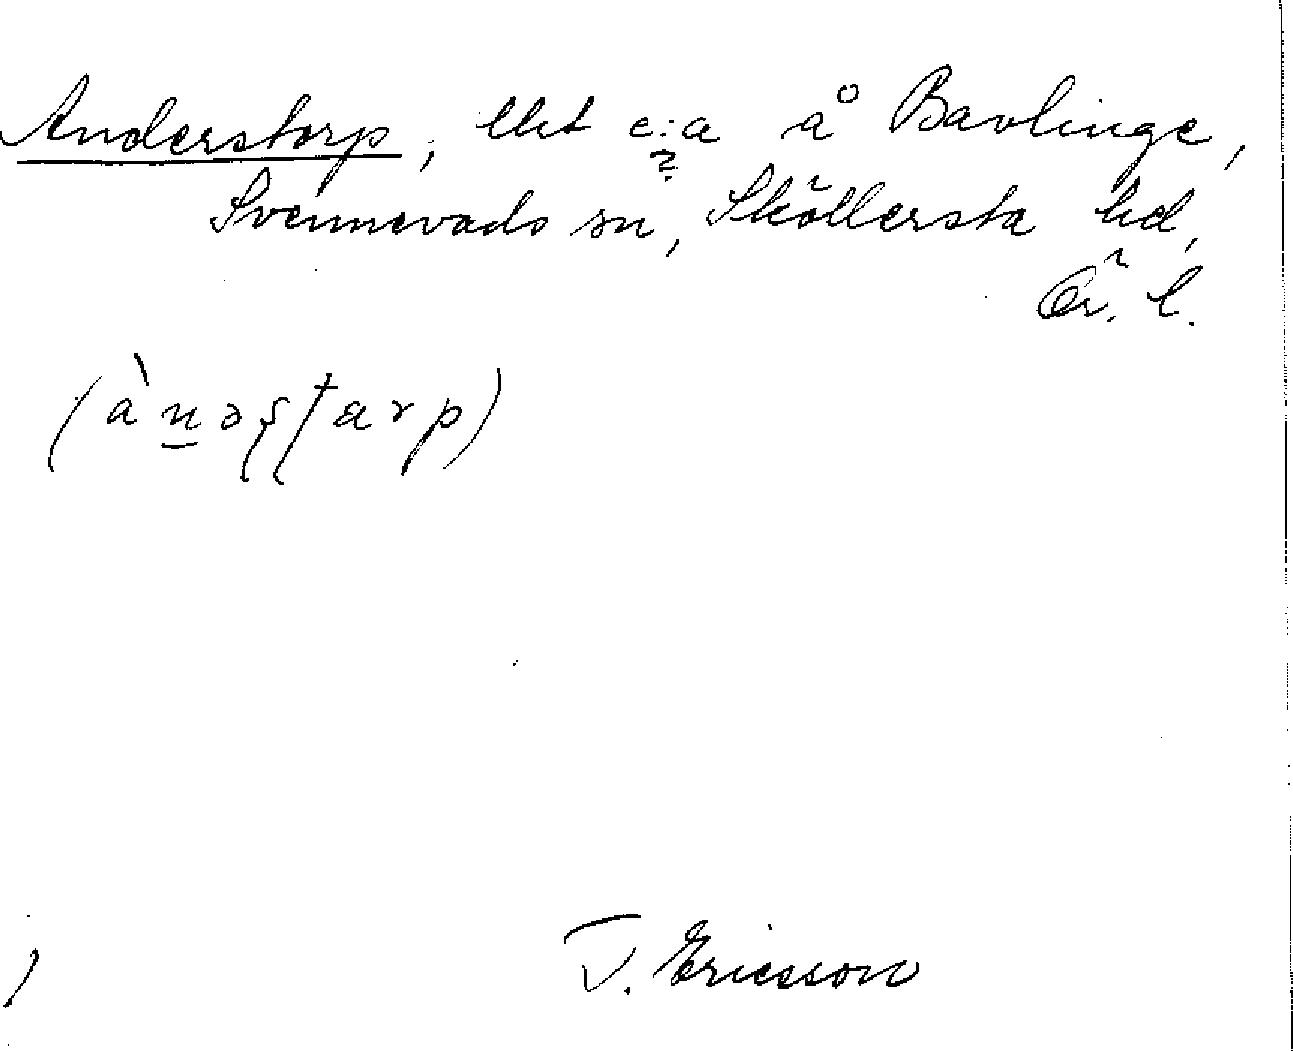 Anderstorp, llht e:a å Bavlinge,
?
Svennevads sn, Sköllersta hd,
Ör. l.
(àn̲əʂtarp)
T. Ericsson